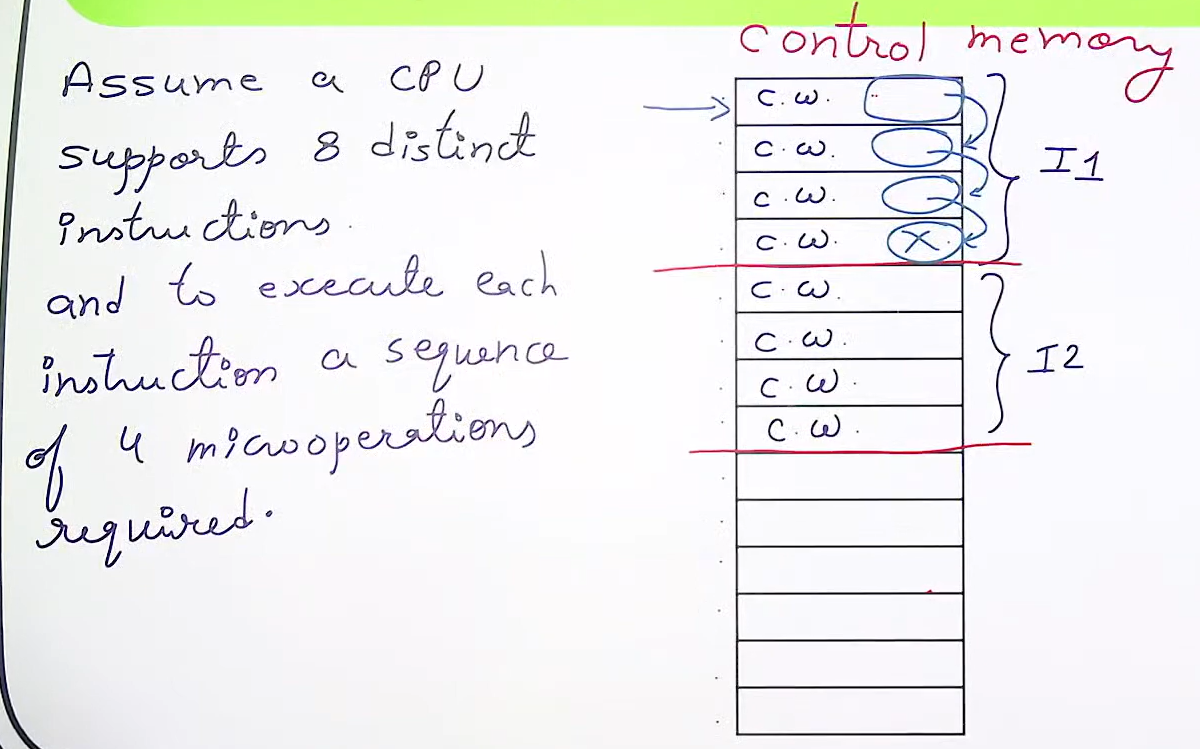 Assume a CPU
supports 8 distinct
instructions.
and to execute each
instruction a sequence
of 4 microoperations
required.
control memory
C.W.
C.W.
C.W.
C.W. X
I1
C.W.
C.W.
C.W.
C.W.
I2